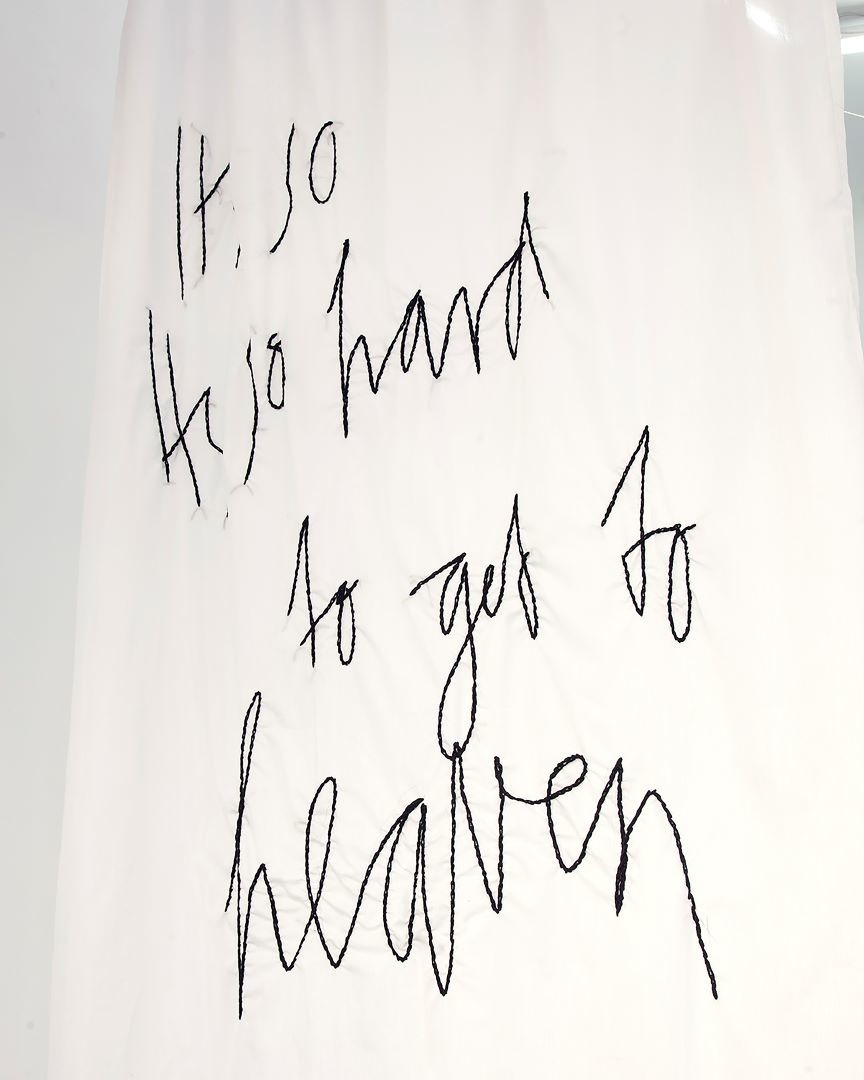 It, so
Its so hard
to get to
heaven